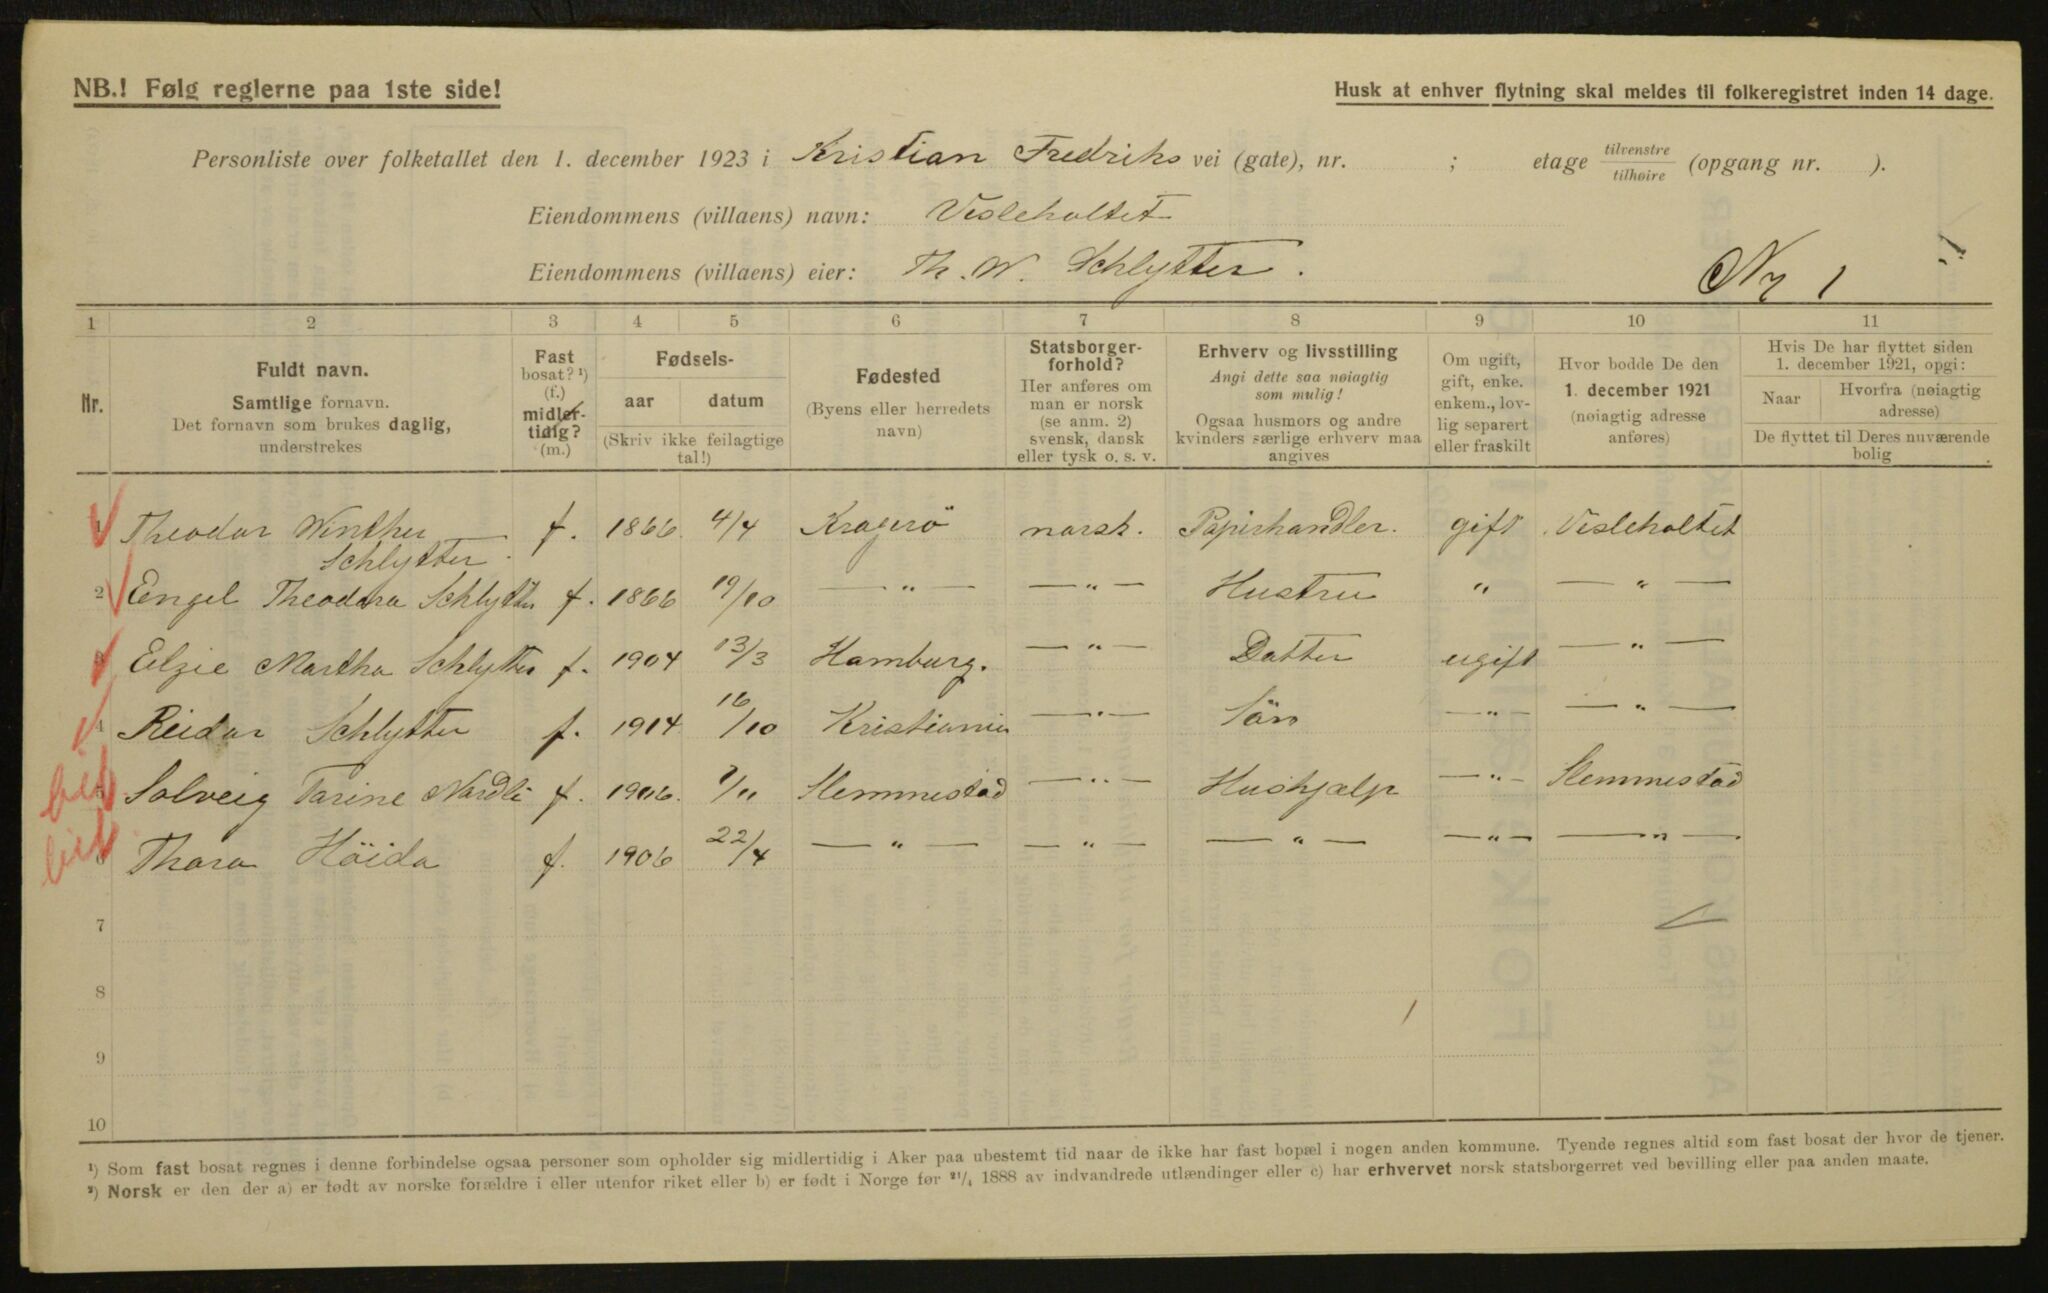 NB.! Følg reglerne paa 1ste side!
Husk at enhver flytning skal meldes til folkeregistret inden 14 dage.
Personliste over folketallet den 1. december 1923 i Kristian Fredriks vei (gate), nr. ; etage tilvenstre / tilhøire (opgang nr. ).
Eiendommens (villaens) navn: Vesleholtet
Eiendommens (villaens) eier: Th. W. Schlytter.
Ny 1
1 2 3 4 5 6 7 8 9 10 11
Nr.
Fuldt navn.
Samtlige fornavn.
Det fornavn som brukes daglig,
understrekes
Fast
bosat? ¹)
(f.)
midler-
tidig?
(m.)
Fødsels-
aar datum
(Skriv ikke feilagtige
tal!)
Fødested
(Byens eller herredets
navn)
Statsborger-
forhold?
Her anføres om
man er norsk
(se anm. 2)
svensk, dansk
eller tysk o. s. v.
Erhverv og livsstilling
Angi dette saa nøiagtig
som mulig!
Ogsaa husmors og andre
kvinders særlige erhverv maa
angives
Om ugift,
gift, enke.
enkem., lov-
lig separert
eller fraskilt
Hvor bodde De den
1. december 1921
(nøiagtig adresse
anføres)
Hvis De har flyttet siden
1. december 1921, opgi:
Naar
Hvorfra (nøiagtig
adresse)
De flyttet til Deres nuværende
bolig
1 Theodor Winther Schlytter. f. 1866. 4/4 Kragerö norsk. Papirhandler. gift Vesleholtet
2 Engel Theodora Schlytter f. 1866 19/10 — " — — " — Hustru " — " —
3 Elzie Martha Schlytter f. 1904 13/3 Hamburg. — " — Datter ugift — " —
4 Reidar Schlytter f. 1914 16/10 Kristiania — " — Sön — " — — " —
5 Solveig Tarine Nordli f. 1906. 7/11 Slemmestad — " — Hushjælp — " — Slemmestad
6 Thora Höida f. 1906 22/4 — " — — " — — " — — " — — " —
7
8
9
10
¹) Som fast bosat regnes i denne forbindelse ogsaa personer som opholder sig midlertidig i Aker paa ubestemt tid naar de ikke har fast bopæl i nogen anden kommune. Tyende regnes altid som fast bosat der hvor de tjener.
²) Norsk er den der a) er født av norske forældre i eller utenfor riket eller b) er født i Norge før ²¹/₄ 1888 av indvandrede utlændinger eller c) har erhvervet norsk statsborgerret ved bevilling eller paa anden maate.